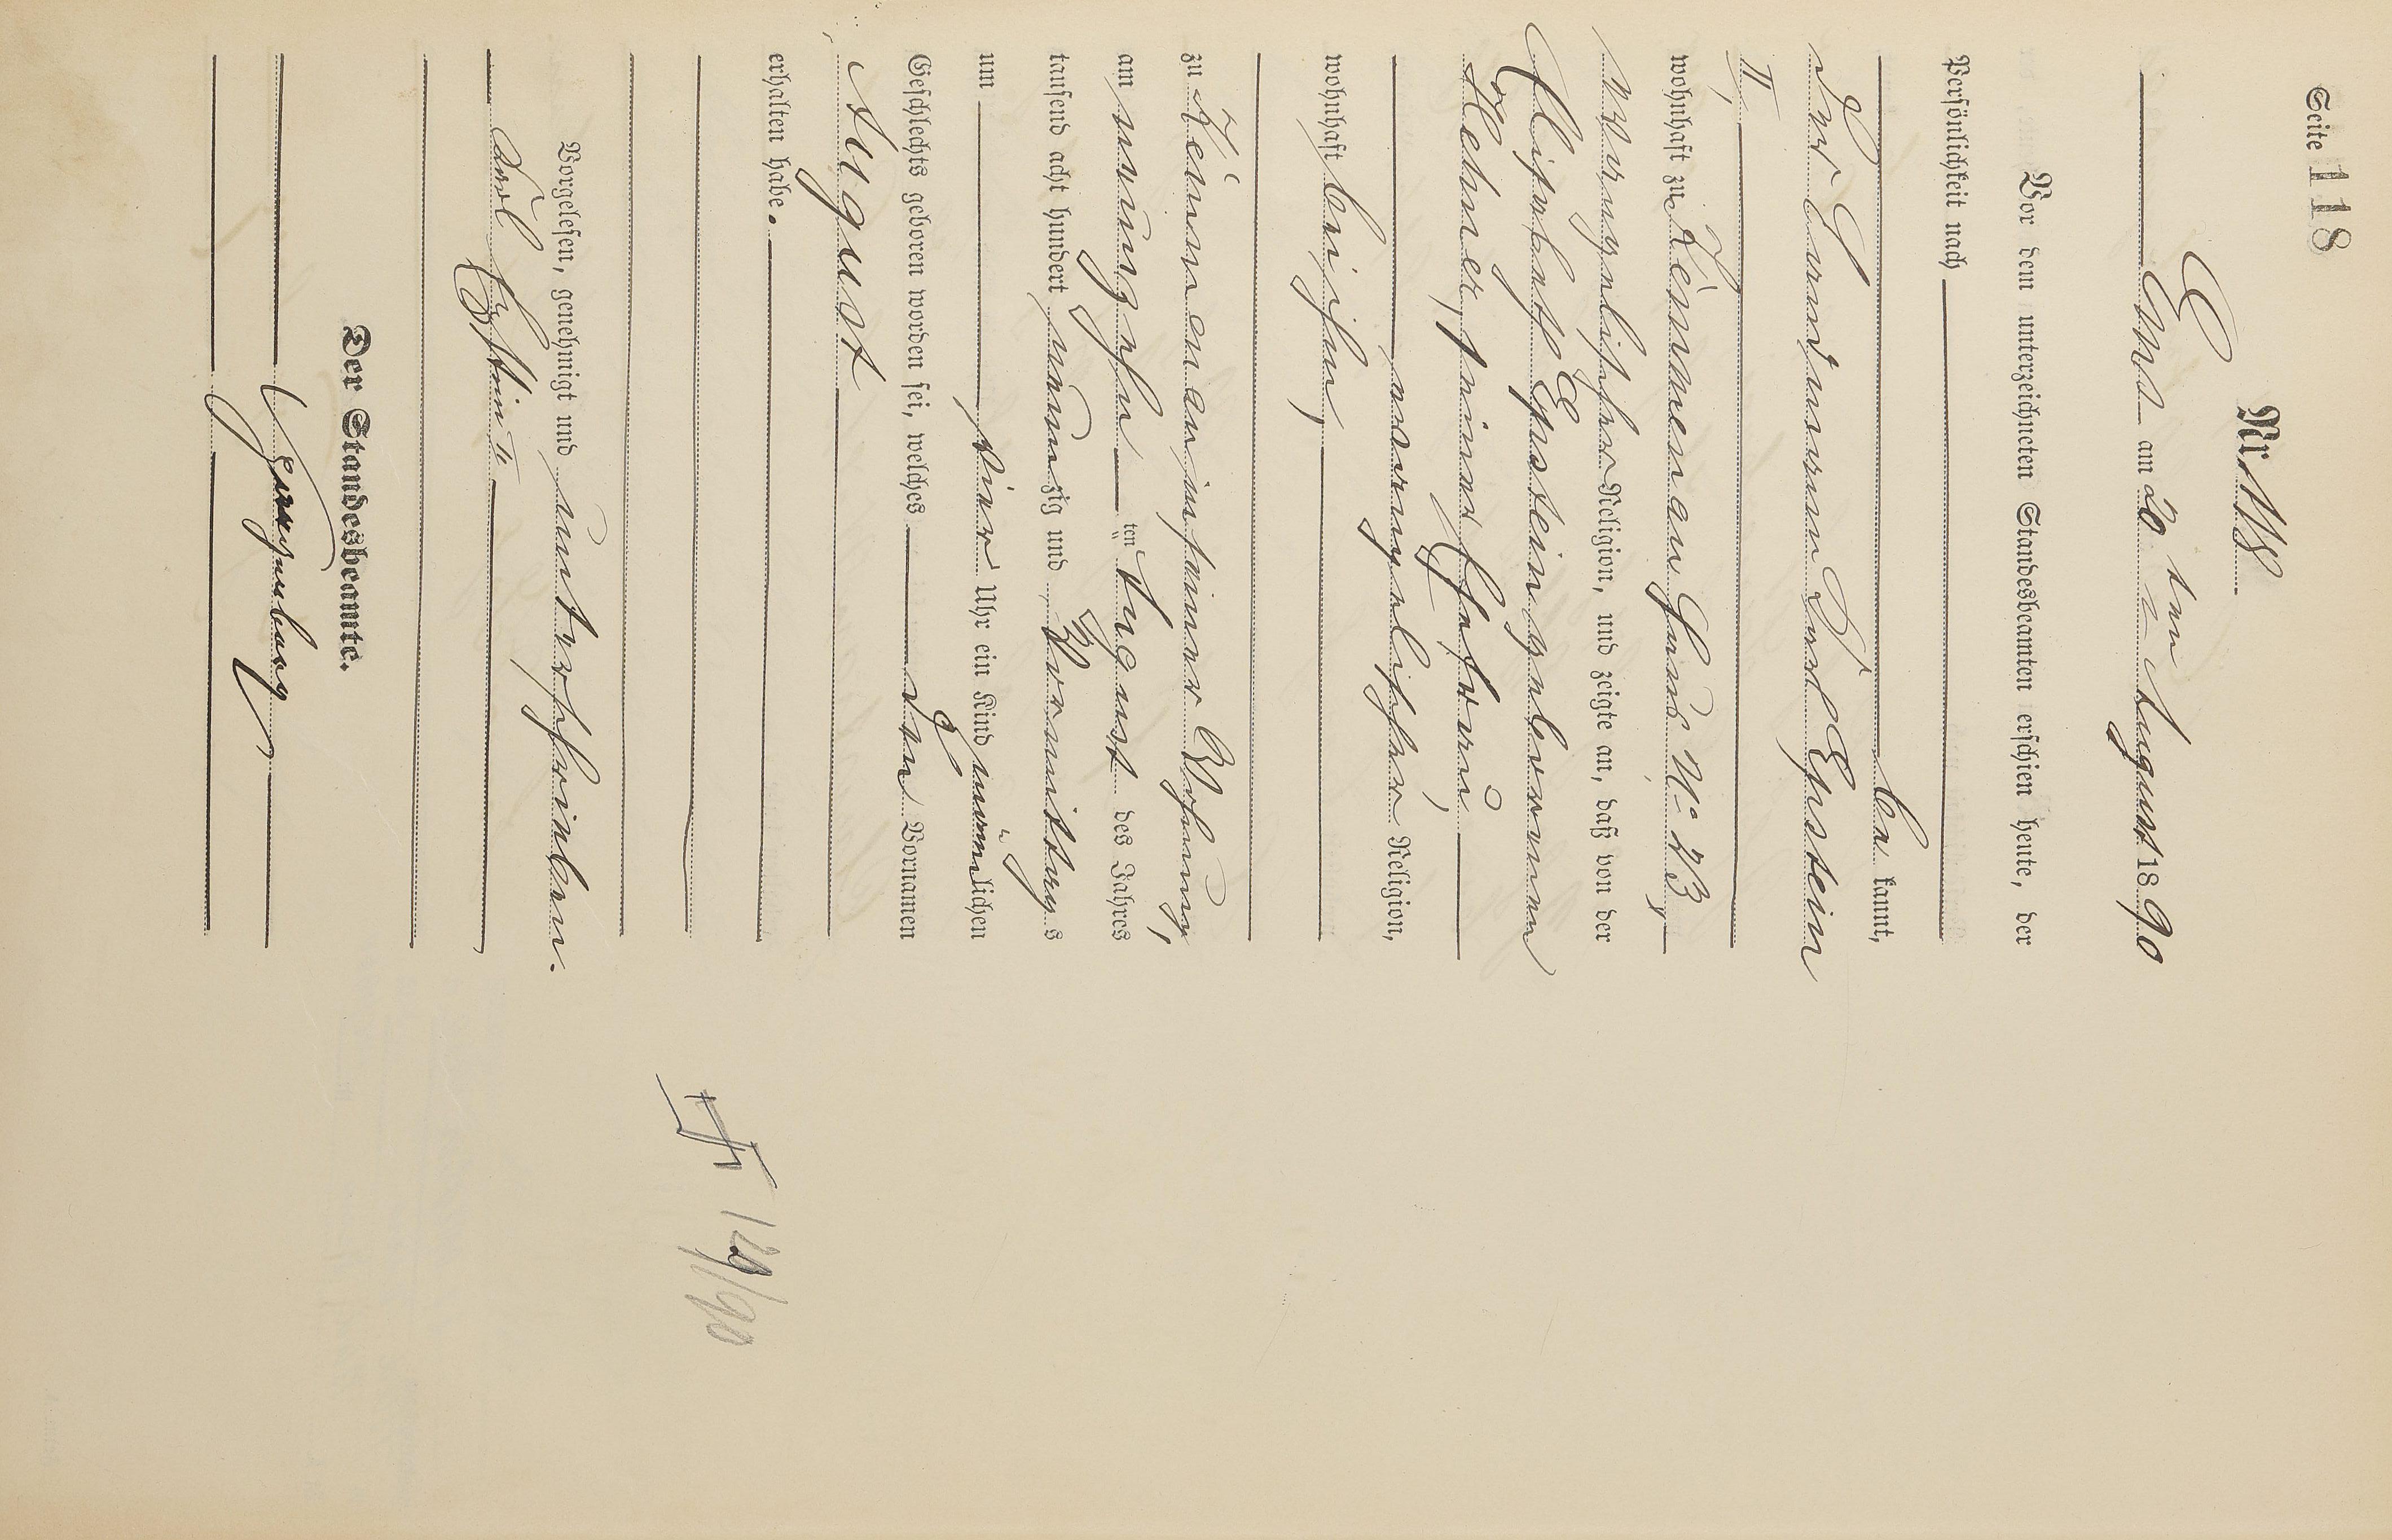 Seite 118
Nr 118
Ems am 20 ten August 1890
Vor dem unterzeichneten Standesbeamten erschien heute, der
Persönlichkeit nach
be kannt,
der Handmann Karl Epstein
II,
wohnhaft zu Kemmenau Haus No 43,
evangelischer Religion, und zeigte an, daß von der
Elisabeth Epstein geborenen
Lehner, seiner Ehefrau,
evangelischer Religion,
wohnhaft bei ihm,
zu Kemmenau in seiner Wohnung,
am neunzehn ten August des Jahres
tausend acht hundert neunzig und Vormittags
um vier Uhr ein Kind männlichen
Geschlechts geboren worden sei, welches den Vornamen
August
erhalten habe.
Vorgelesen, genehmigt und unterschrieben.
Karl Epstein II
Der Standesbeamte.